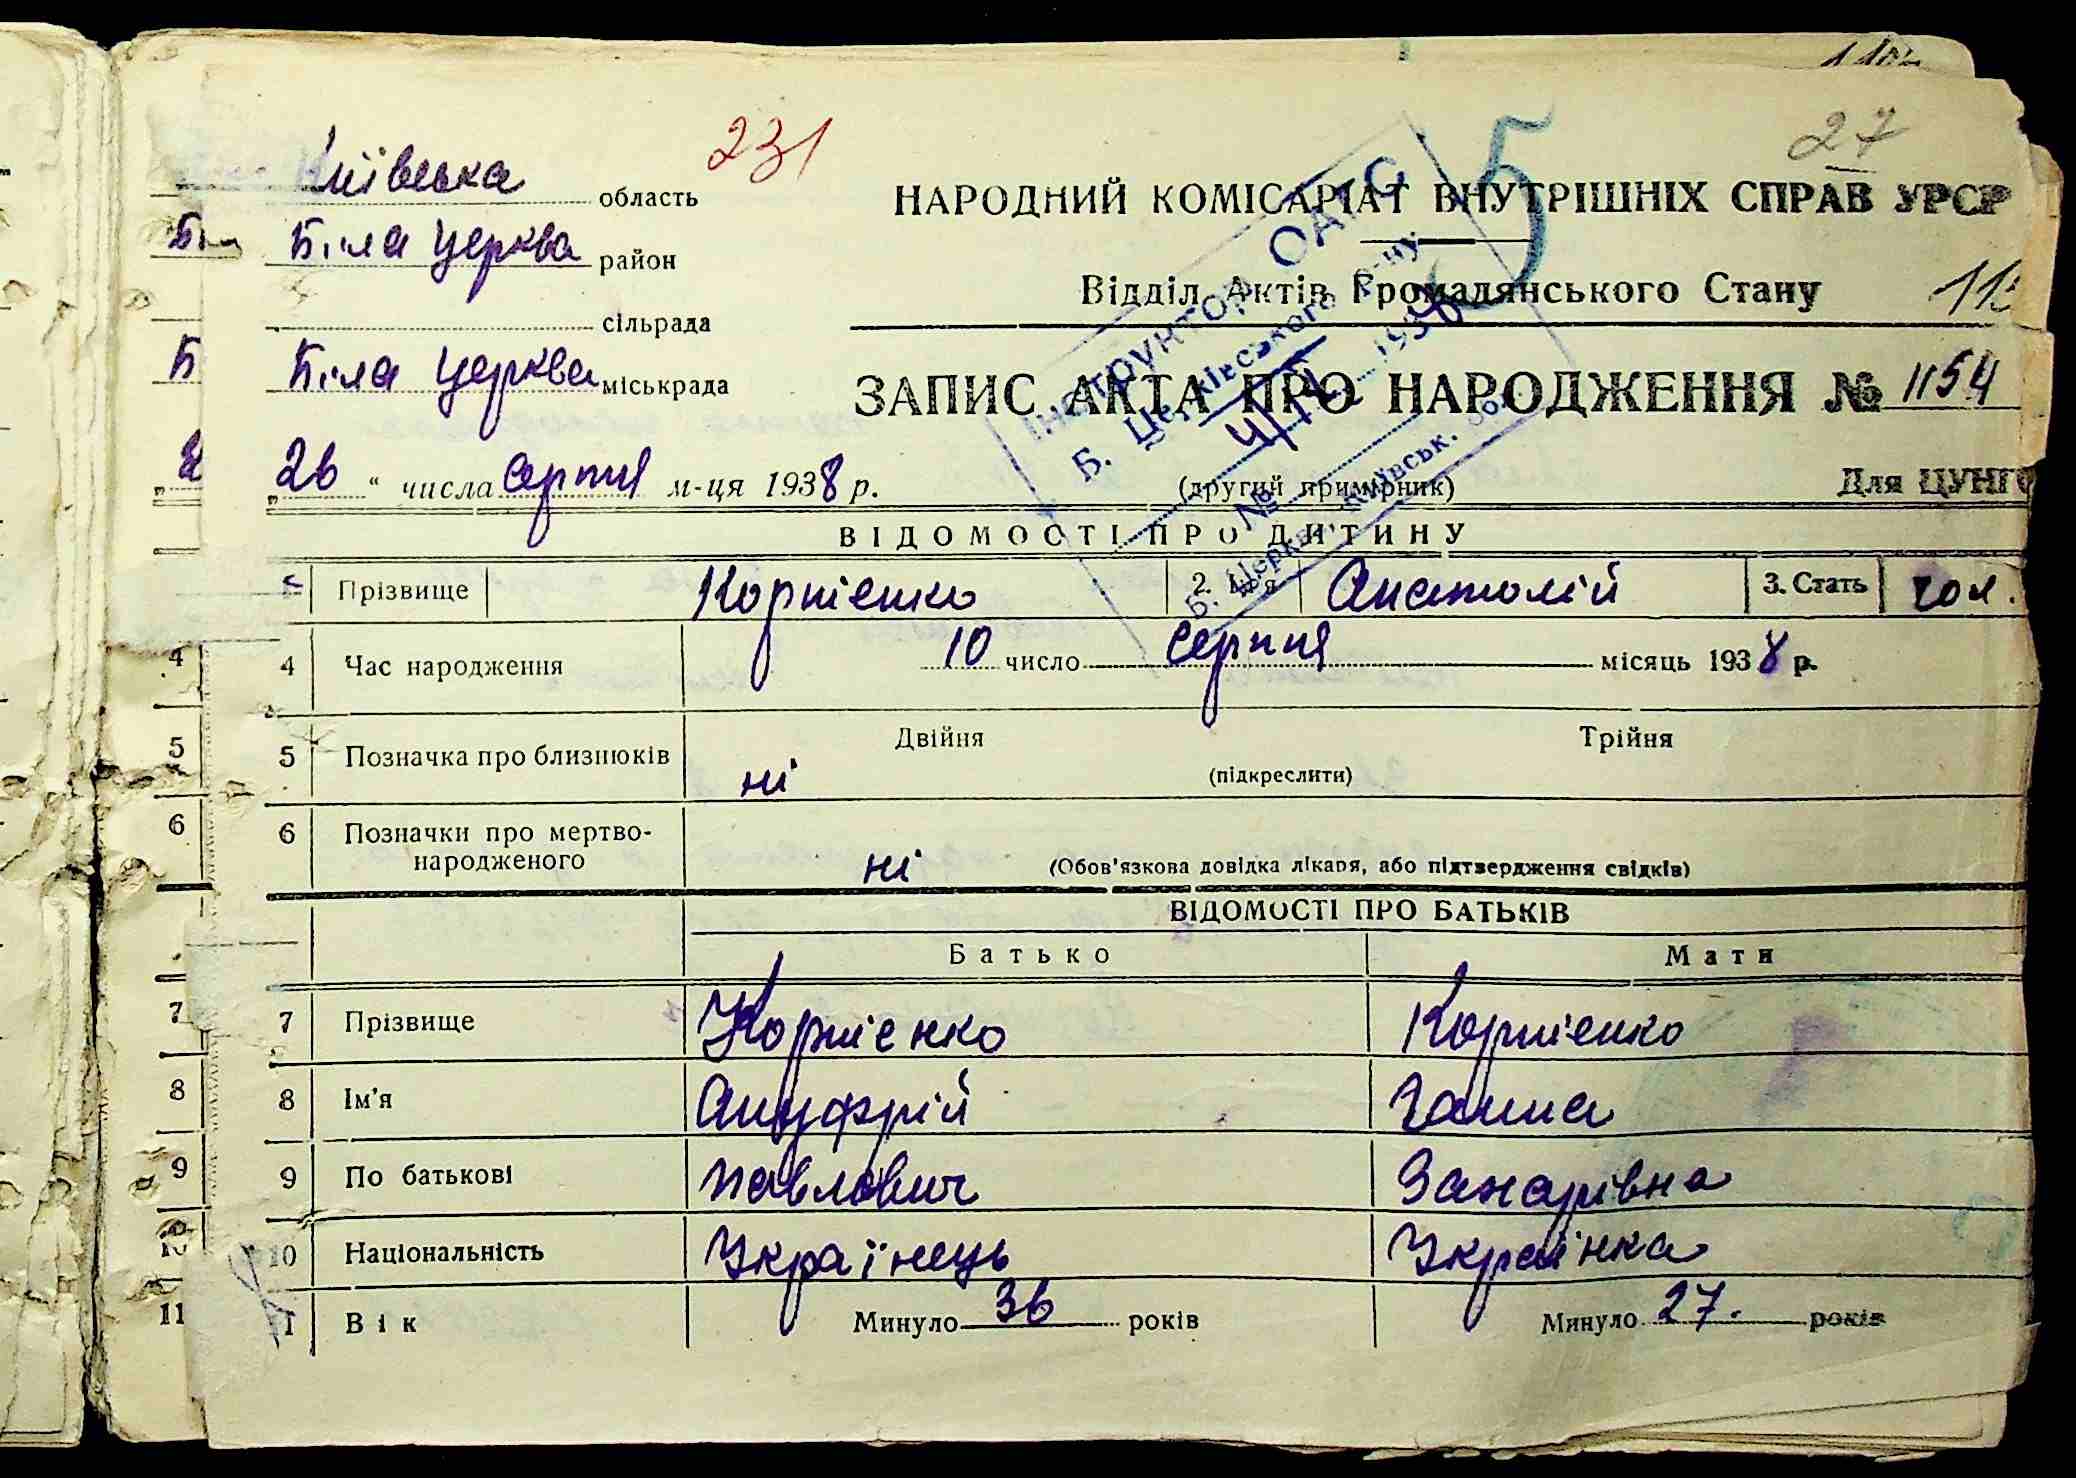 231
27
Київська область
Біла Церква район
сільрада
Біла Церква міськрада
„26“ числа серпня м-ця 1938 р.
5
НАРОДНИЙ КОМІСАРІАТ ВНУТРІШНІХ СПРАВ УРСР
Відділ Актів Громадянського Стану
ЗАПИС АКТА ПРО НАРОДЖЕННЯ № 1154
(другий примірник)
Для ЦУНГО
ВІДОМОСТІ ПРО ДИТИНУ
Прізвище Корнієнко 2. Ім'я Анатолій 3. Стать чол.
4 Час народження 10 число серпня місяць 1938 р.
5 Позначка про близнюків ні Двійня (підкреслити) Трійня
6 Позначки про мертво-
народженого ні (Обов'язкова довідка лікаря, або підтвердження свідків)
ВІДОМОСТІ ПРО БАТЬКІВ
Батько Мати
7 Прізвище Корнієнко Корнієнко
8 Ім'я Ануфрій Ганна
9 По батькові Павлович Захарівна
10 Національність Українець Українка
11 Вік Минуло 36 років Минуло 27. років